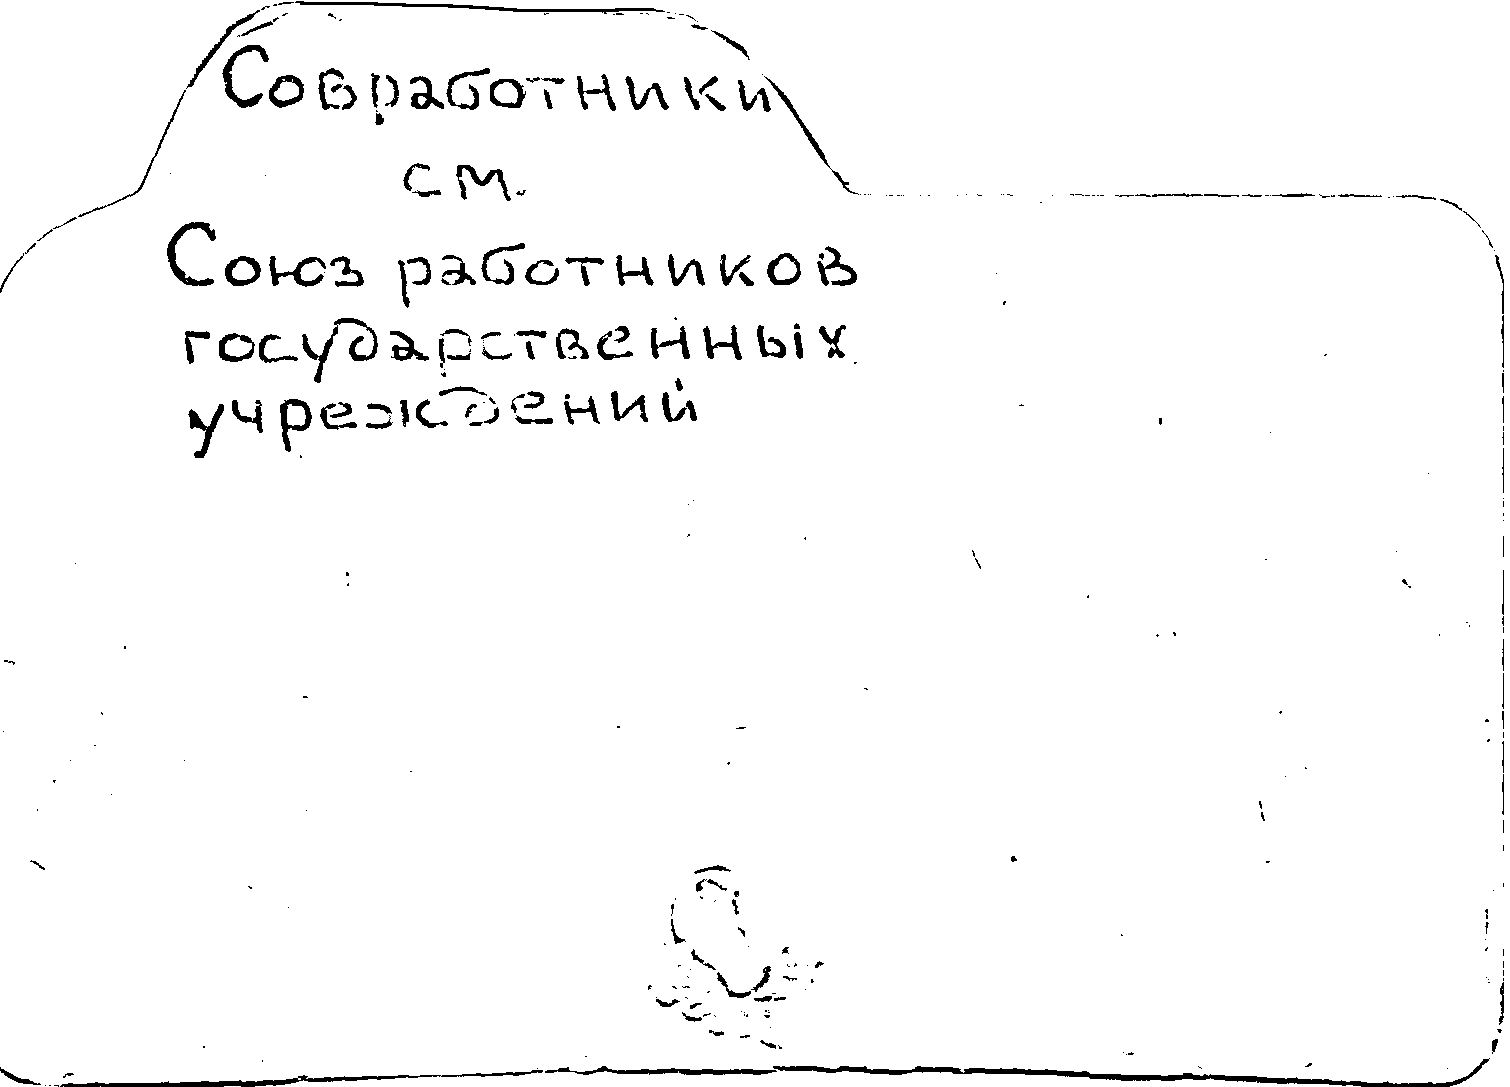 Совработники
см.
Союз работников
государственных
учреждений